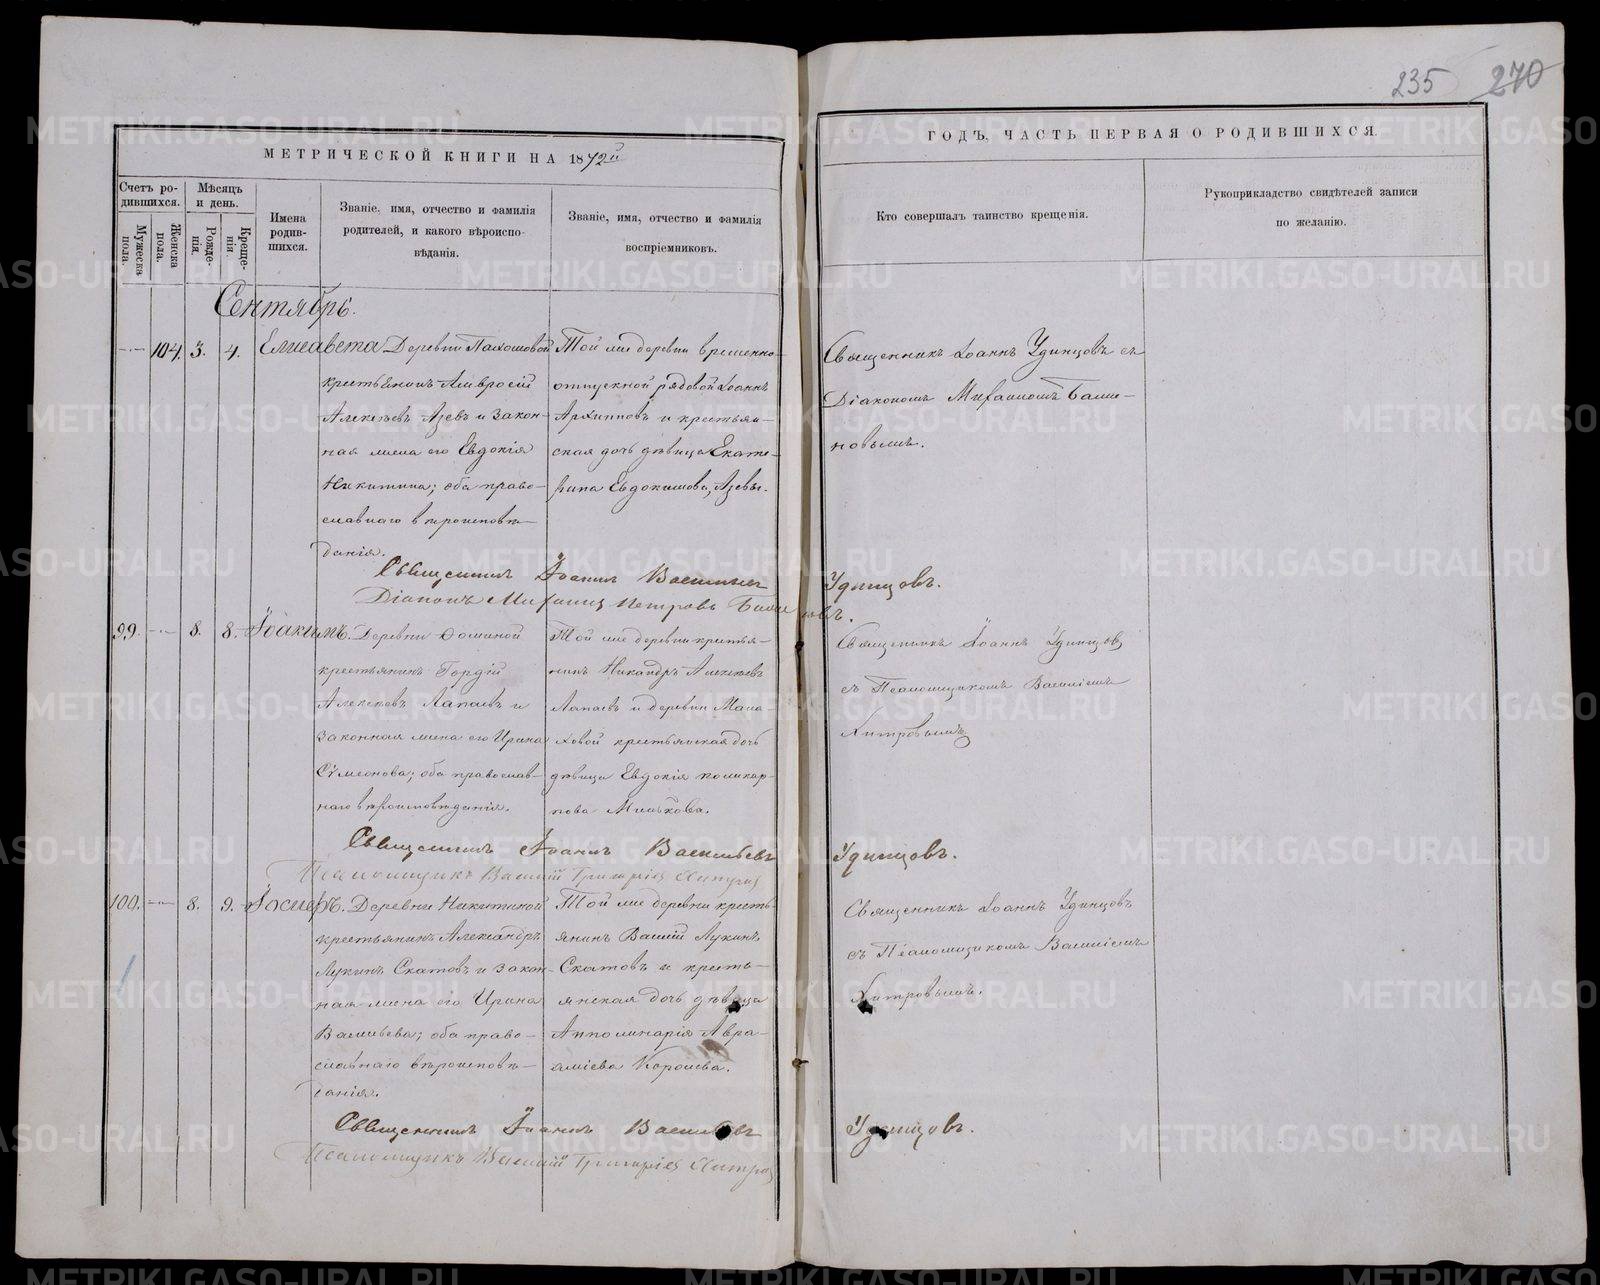 235 270
МЕТРИЧЕСКОЙ КНИГИ НА 1872й
ГОДЪ, ЧАСТЬ ПЕРВАЯ О РОДИВШИХСЯ.
Счетъ ро-
дившихся.
Мужеска
пола.
Женска
пола.
Мѣсяцъ
и день.
Рожде-
нія.
Креще-
нія.
Имена
родив-
шихся.
Званіе, имя, отчество и фамилія
родителей, и какого вѣроиспо-
вѣданія.
Званіе, имя, отчество и фамилія
воспріемниковъ.
Кто совершалъ таинство крещенія.
Рукоприкладство свидѣтелей записи
по желанію.
Сентябрь.
104. 3. 4. Елисавета
Деревни
крестьянинъ Амвросій
Алексѣевъ Азевъ и закон-
ная жена его Евдокія
Никитина; оба право-
славнаго вѣроисповѣ-
данія.
Той же деревни временно-
отпускной рядовой Іоаннъ
Архиповъ и крестьян-
ская дочь дѣвица Екате-
рина Евдокимова, Азевы.
Священникъ Іоаннъ Удинцовъ съ
Діакономъ Михаиломъ Баши-
новымъ.
Священникъ Іоаннъ Васильевъ Удинцовъ.
Діаконъ Михаилъ Петровъ Башиновъ.
99. 8. 8. Іоакимъ.
Деревни Ѳоминой
крестьянинъ Гордій
Алексѣевъ Лапаевъ и
законная жена его Ирина
Сѵмеонова; оба православ-
наго вѣроисповѣданія.
Той же деревни крестья-
нинъ Никандръ Алексѣевъ
Лапаевъ и деревни Мала-
ховой крестьянская дочь
дѣвица Евдокія Поликар-
пова Минькова.
Священникъ Іоаннъ Удинцовъ
съ Псаломщикомъ Василіемъ
Хитровымъ
Священникъ Іоаннъ Васильевъ Удинцовъ.
Псаломщикъ Василій Григоріевъ Хитровъ
100. 8. 9. Іосифъ.
Деревни Никитиной
крестьянинъ Александръ
Лукинъ Скатовъ и закон-
ная жена его Ирина
Васильева; оба право-
славнаго вѣроисповѣ-
данія.
Той же деревни кресть-
янинъ Василій Лукинъ
Скатовъ и кресть-
янская дочь дѣвица
Апполинарія Авра-
аміева Королева.
Священникъ Іоаннъ Удинцовъ
съ Псаломщикомъ Василіемъ
Хитровымъ.
Священникъ Іоаннъ Васильевъ Удинцовъ.
Псаломщикъ Василій Григоріевъ Хитровъ
METRIKI.GASO-URAL.RU